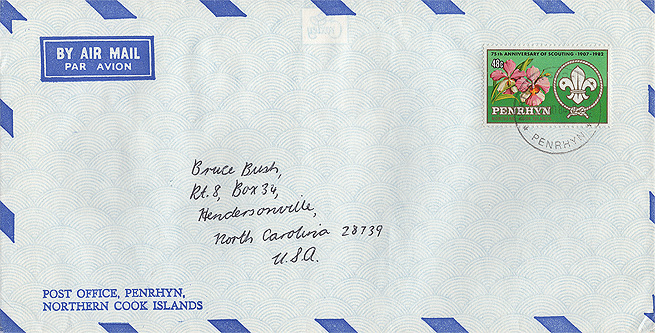 BY AIR MAIL
PAR AVION
75th ANNIVERSARY OF SCOUTING · 1907-1982
48c
PENRHYN
PENRHYN
Bruce Bush,
Rt. 8, Box 34,
Hendersonville,
North Carolina 28739
U.S.A.
POST OFFICE, PENRHYN,
NORTHERN COOK ISLANDS